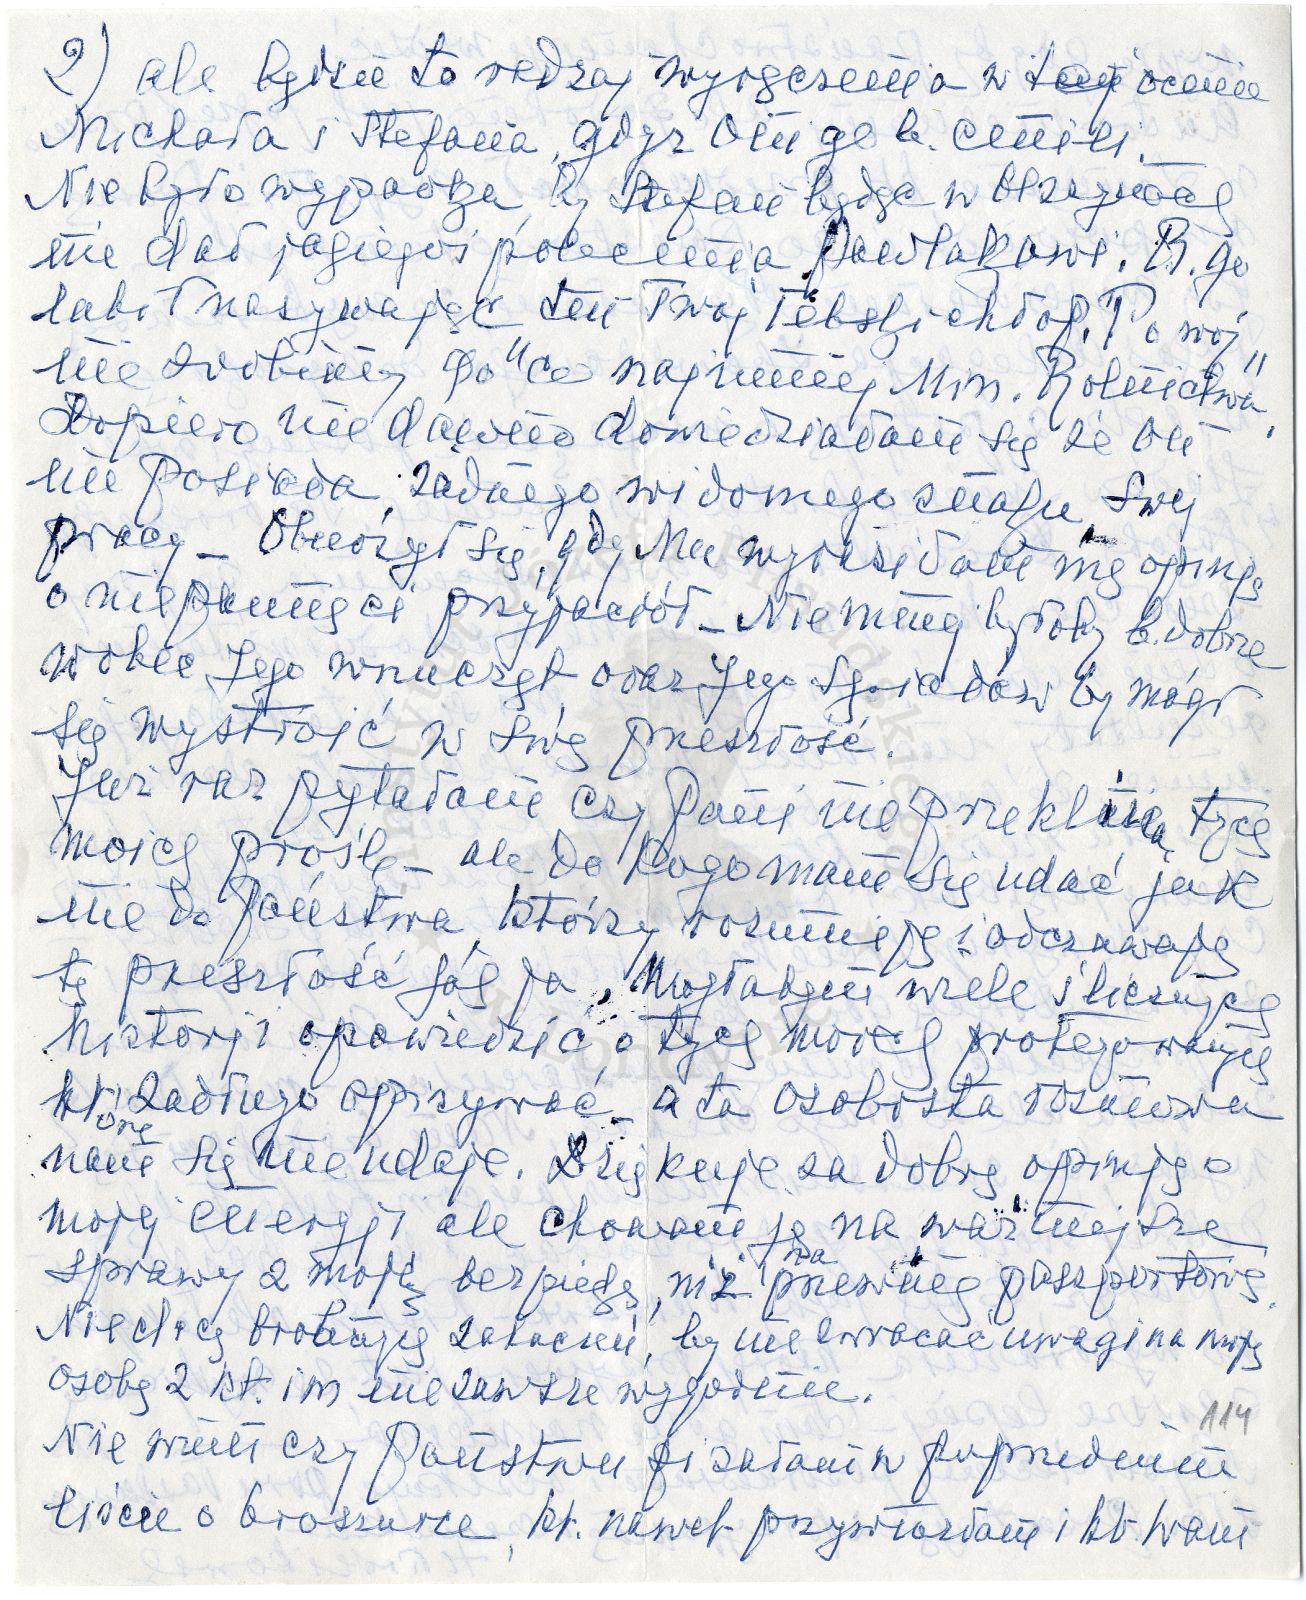 2) ale będzie to rodzaj wyręczenia w tej ocenie
Michała i Stefana, gdyż Oni go b. cenili.
Nie było wypadku, by Stefan będąc w Olszynach
nie dał jagiegoś polecenia Pawlakowi. B. go
lubił nazywając ten Twój Tębski chłop. Po woj
nie zrobimy Go "co najmniej Min. Rolnictwa".
Dopiero nie dawno dowiedziałam się że On
nie posiada żadnego widomego znaku Swej
pracy – Oburzył się, gdy Mu wyraziłam mą opinję
o niepamięci przyjaciół – Niemniej byłoby b. dobrze
wobec Jego wnucząt oraz Jego Sąsiadów by mógł
się wystroić w Swą przeszłość.
Już raz pytałam czy Pani nie przeklina tych
moich próśb – ale do kogo mam się udać jak
nie do Państwa, którzy rozumieją i odczuwają
tę przeszłość jag ja. Mogłabym wiele ślicznych
historji opowiedzić o tych moich protegowanych
które zadługo opisywać – a ta osobista rozmowa
nam się nie udaje. Dziękuję za dobrą opinję o
mojej energji ale chowam ją na ważniejsze
sprawy z moją bezpieką, niż na przewinę paszportową.
Nie chcę trobicję zatocku, by nie zwracać uwagi na moją
osobę z kt. im nie zawsze wygodnie.
114
Nie wiem czy Państwu pisałam w poprzednim
liście o broszurce, kt. nawet przywiozłam i kt. Wam